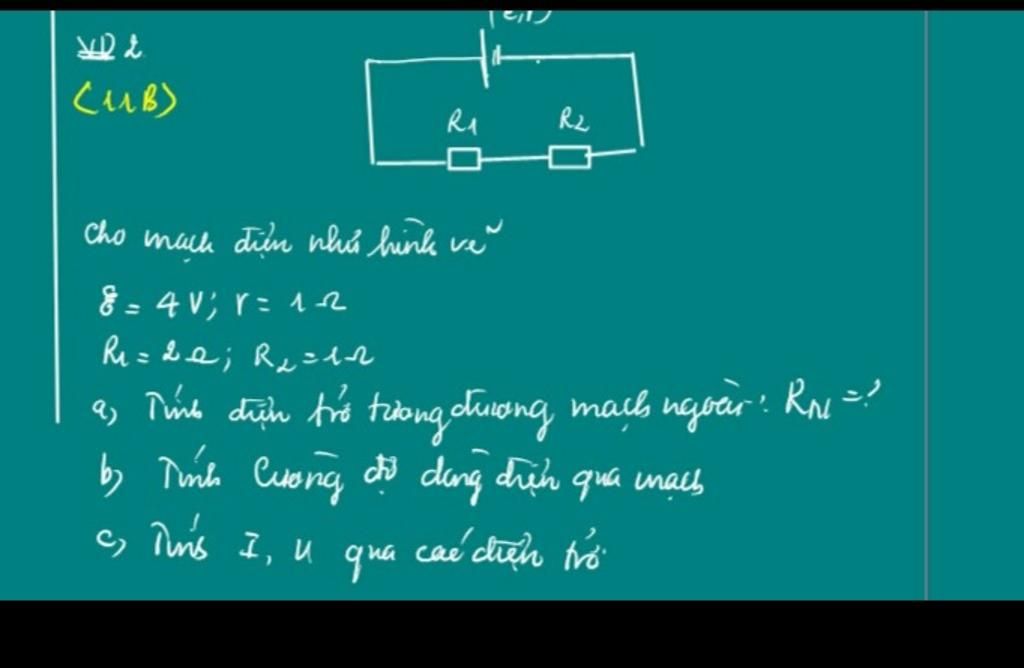 VD 2
(11B)
R1 R2
Cho mạch điện như hình vẽ
ℰ = 4 V; r = 1 Ω
R1 = 2 Ω; R2 = 1 Ω
a) Tính điện trở tương đương mạch ngoài: RN = ?
b) Tính Cường độ dòng điện qua mạch
c) Tính I, U qua các điện trở